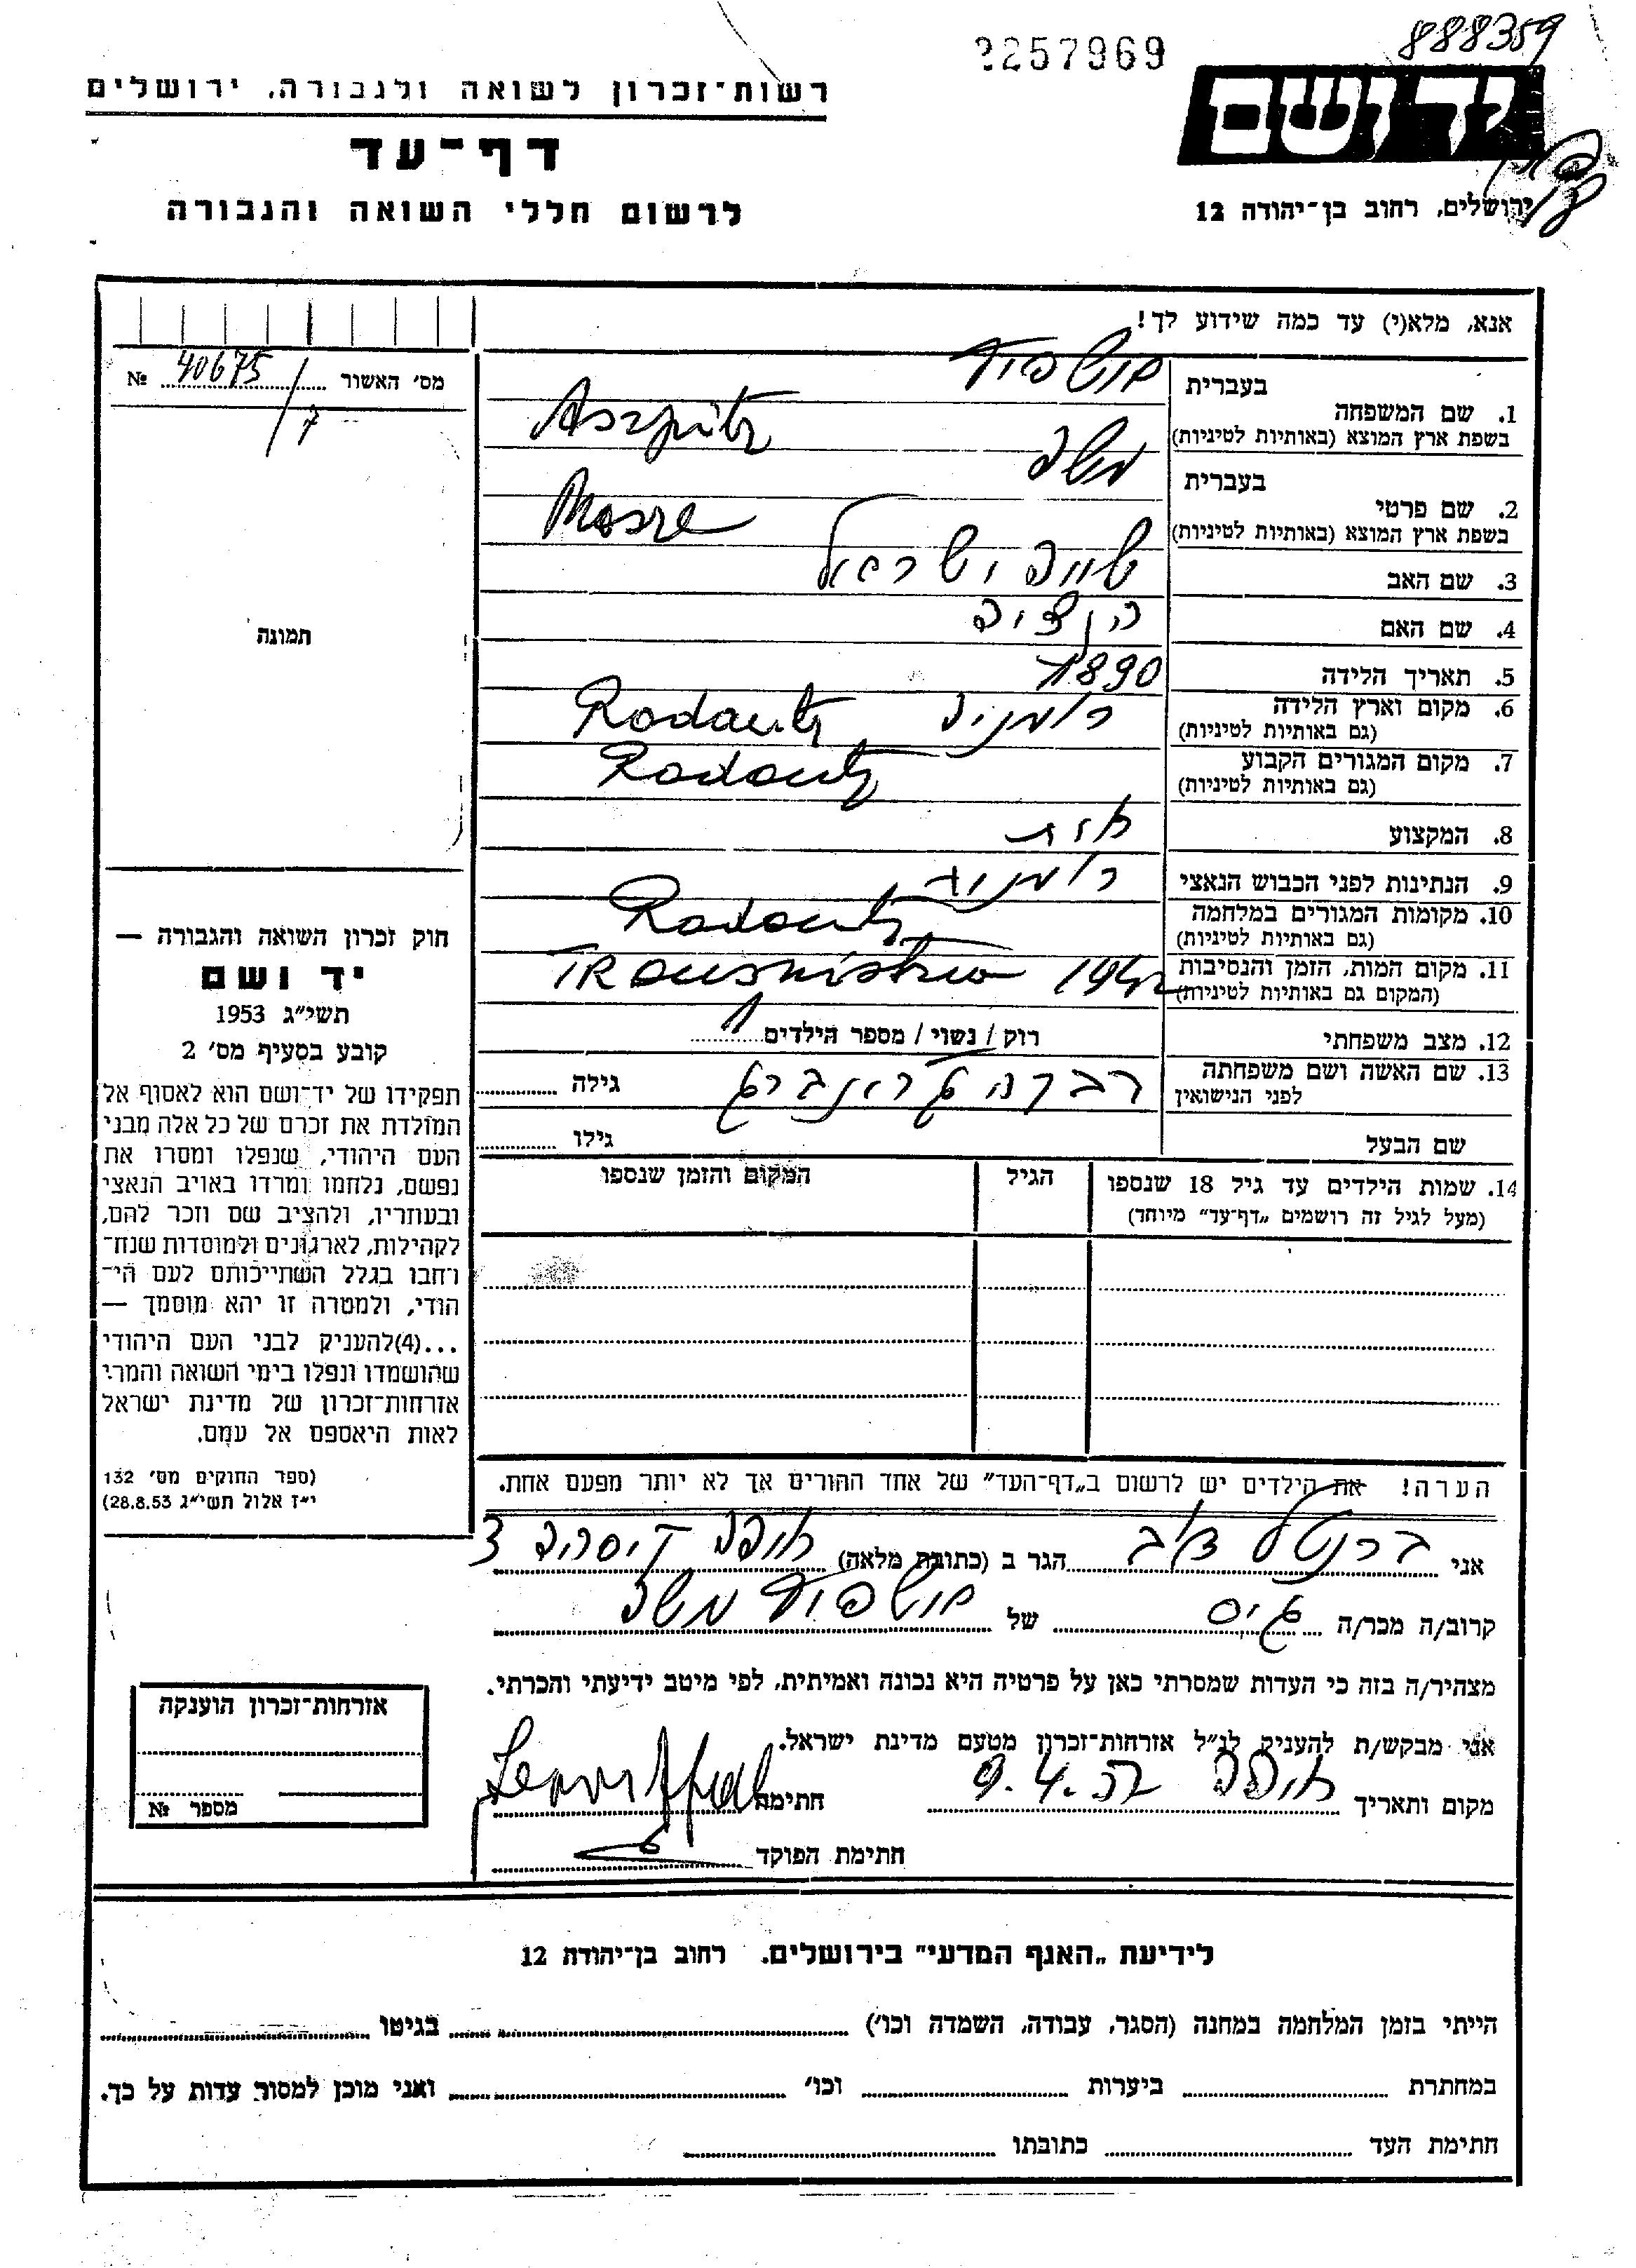 888359
2257969
יד ושם
ירושלים, רחוב בן־יהודה 12
רשות־זכרון לשואה ולגבורה, ירושלים
דף־עד
לרשום חללי השואה והגבורה
אנא, מלא(י) עד כמה שידוע לך!
מס׳ האשור № 40675/7
תמונה
1. שם המשפחה
בעברית
בשפת ארץ המוצא (באותיות לטיניות) Aszpitz
2. שם פרטי
בעברית משה
בשפת ארץ המוצא (באותיות לטיניות) Mosze
3. שם האב ישראל
4. שם האם
5. תאריך הלידה 1890
6. מקום וארץ הלידה רומניה Radautz
(גם באותיות לטיניות)
7. מקום המגורים הקבוע Radautz
(גם באותיות לטיניות)
8. המקצוע
9. הנתינות לפני הכבוש הנאצי רומניה
10. מקומות המגורים במלחמה Radautz
(גם באותיות לטיניות)
11. מקום המות, הזמן והנסיבות Transnistria 1942
(המקום גם באותיות לטיניות)
12. מצב משפחתי רוק / נשוי / מספר הילדים
13. שם האשה ושם משפחתה רבקה גילה
לפני הנישואין
שם הבעל גילו
14. שמות הילדים עד גיל 18 שנספו הגיל המקום והזמן שנספו
(מעל לגיל זה רושמים „דף־עד״ מיוחד)
הערה! את הילדים יש לרשום ב„דף־העד״ של אחד ההורים אך לא יותר מפעם אחת.
חוק זכרון השואה והגבורה —
יד ושם
תשי״ג 1953
קובע בסעיף מס׳ 2
תפקידו של יד־ושם הוא לאסוף אל
המולדת את זכרם של כל אלה מבני
העם היהודי, שנפלו ומסרו את
נפשם, נלחמו ומרדו באויב הנאצי
ובעוזריו, ולהציב שם וזכר להם,
לקהילות, לארגונים ולמוסדות שנח־
רחבו בגלל השתייכותם לעם הי־
הודי, ולמטרה זו יהא מוסמך —
...(4)להעניק לבני העם היהודי
שהושמדו ונפלו בימי השואה והמרי
אזרחות־זכרון של מדינת ישראל
לאות היאספם אל עמם.
(ספר החוקים מס׳ 132
י״ז אלול תשי״ג 28.8.53)
אני ברנטל הגר ב (כתובת מלאה) חיפה
קרוב/ה מכר/ה גיס של משה
מצהיר/ה בזה כי העדות שמסרתי כאן על פרטיה היא נכונה ואמיתית, לפי מיטב ידיעתי והכרתי.
אני מבקש/ת להעניק לנ״ל אזרחות־זכרון מטעם מדינת ישראל.
מקום ותאריך חיפה חתימה
חתימת הפוקד
אזרחות־זכרון הוענקה
מספר №
לידיעת „האגף המדעי״ בירושלים. רחוב בן־יהודה 12
הייתי בזמן המלחמה במחנה (הסגר, עבודה, השמדה וכו׳) בגיטו
במחתרת ביערות וכו׳ ואני מוכן למסור עדות על כך.
חתימת העד כתובתו